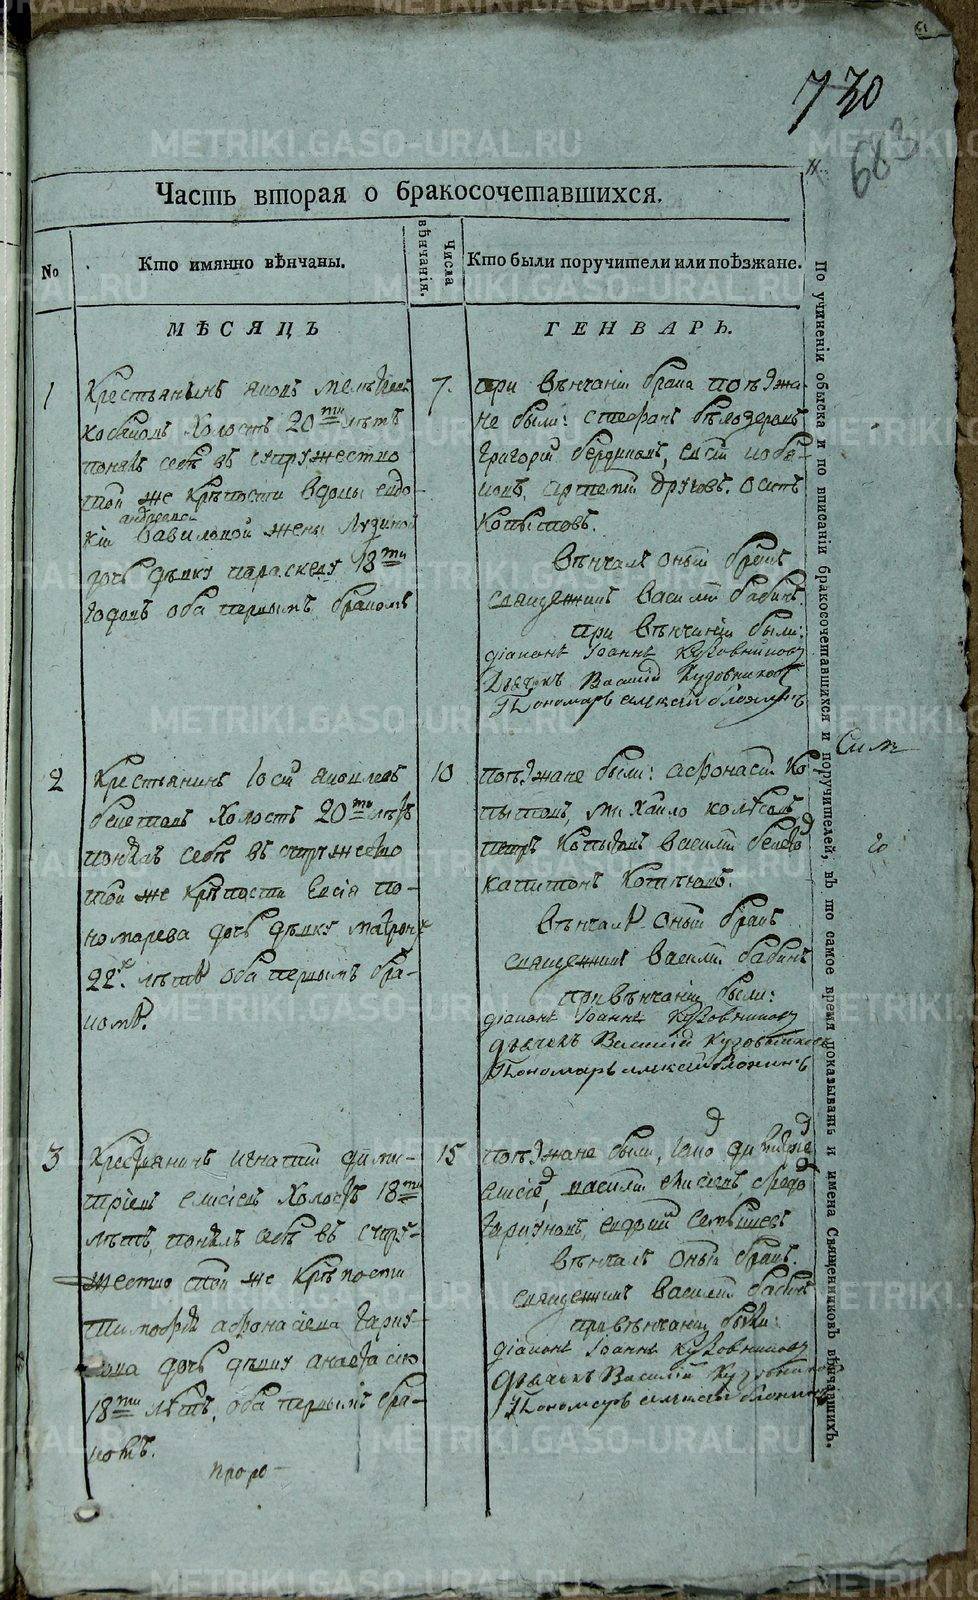 730
683
Часть вторая о бракосочетавшихся.
№
Кто имянно вѣнчаны.
Числа вѣнчанія.
Кто были поручители или поѣзжане.
МѢСЯЦЪ
ГЕНВАРЬ.
1
Крестьянинъ яковъ
холостъ 20ти лѣтъ
понялъ себѣ въ супружество
той же крѣпости вдовы евдо-
кіи вавиловой жены
дочь дѣвку параскеву 18ти
годовъ оба первымъ бракомъ
7.
при вѣнчаніи брака поѣзжа-
не были: стефанъ бѣлозеровъ
григорій
артемій
копытовъ.
вѣнчалъ оный бракъ
священникъ василій бабинъ.
при вѣнчаніи были:
діаконъ Іоаннъ Кузовниковъ
Дьячекъ Василій Кузовниковъ
Пономарь алексій
2
Крестьянинъ
холостъ 20ти лѣтъ
понялъ себѣ въ супружество
той же крѣпости Елсія по-
номарева дочь дѣвку матрону
22х лѣтъ оба первымъ бра-
комъ.
10
поѣзжане были: афонасій ко
пытовъ, михайло
петръ Копытовъ василій
капитонъ
Вѣнчалъ оный бракъ
священникъ василій бабинъ
при вѣнчаніи были:
діаконъ Іоаннъ Кузовниковъ
дьячекъ Василій Кузовниковъ
Пономарь алексій
3
Крестьянинъ игнатій дими-
тріевъ елисіевъ холостъ 18ти
лѣтъ, понялъ себѣ въ супру-
жество той же крѣпости
тимофѣя афонасіева
дочь дѣвку анастасію
18ти лѣтъ, оба первымъ бра-
комъ.
15
поѣзжане были,
василій елисіевъ,
андрей
вѣнчалъ оный бракъ
священникъ василій бабинъ
при вѣнчаніи были:
діаконъ Іоаннъ Кузовниковъ
дьячекъ Василій Кузовниковъ
Пономарь алексій
По учиненіи обыска и по вписаніи бракосочетавшихся и поручителей, въ то самое время показывать и имена Священниковъ вѣнчавшихъ.
METRIKI.GASO-URAL.RU